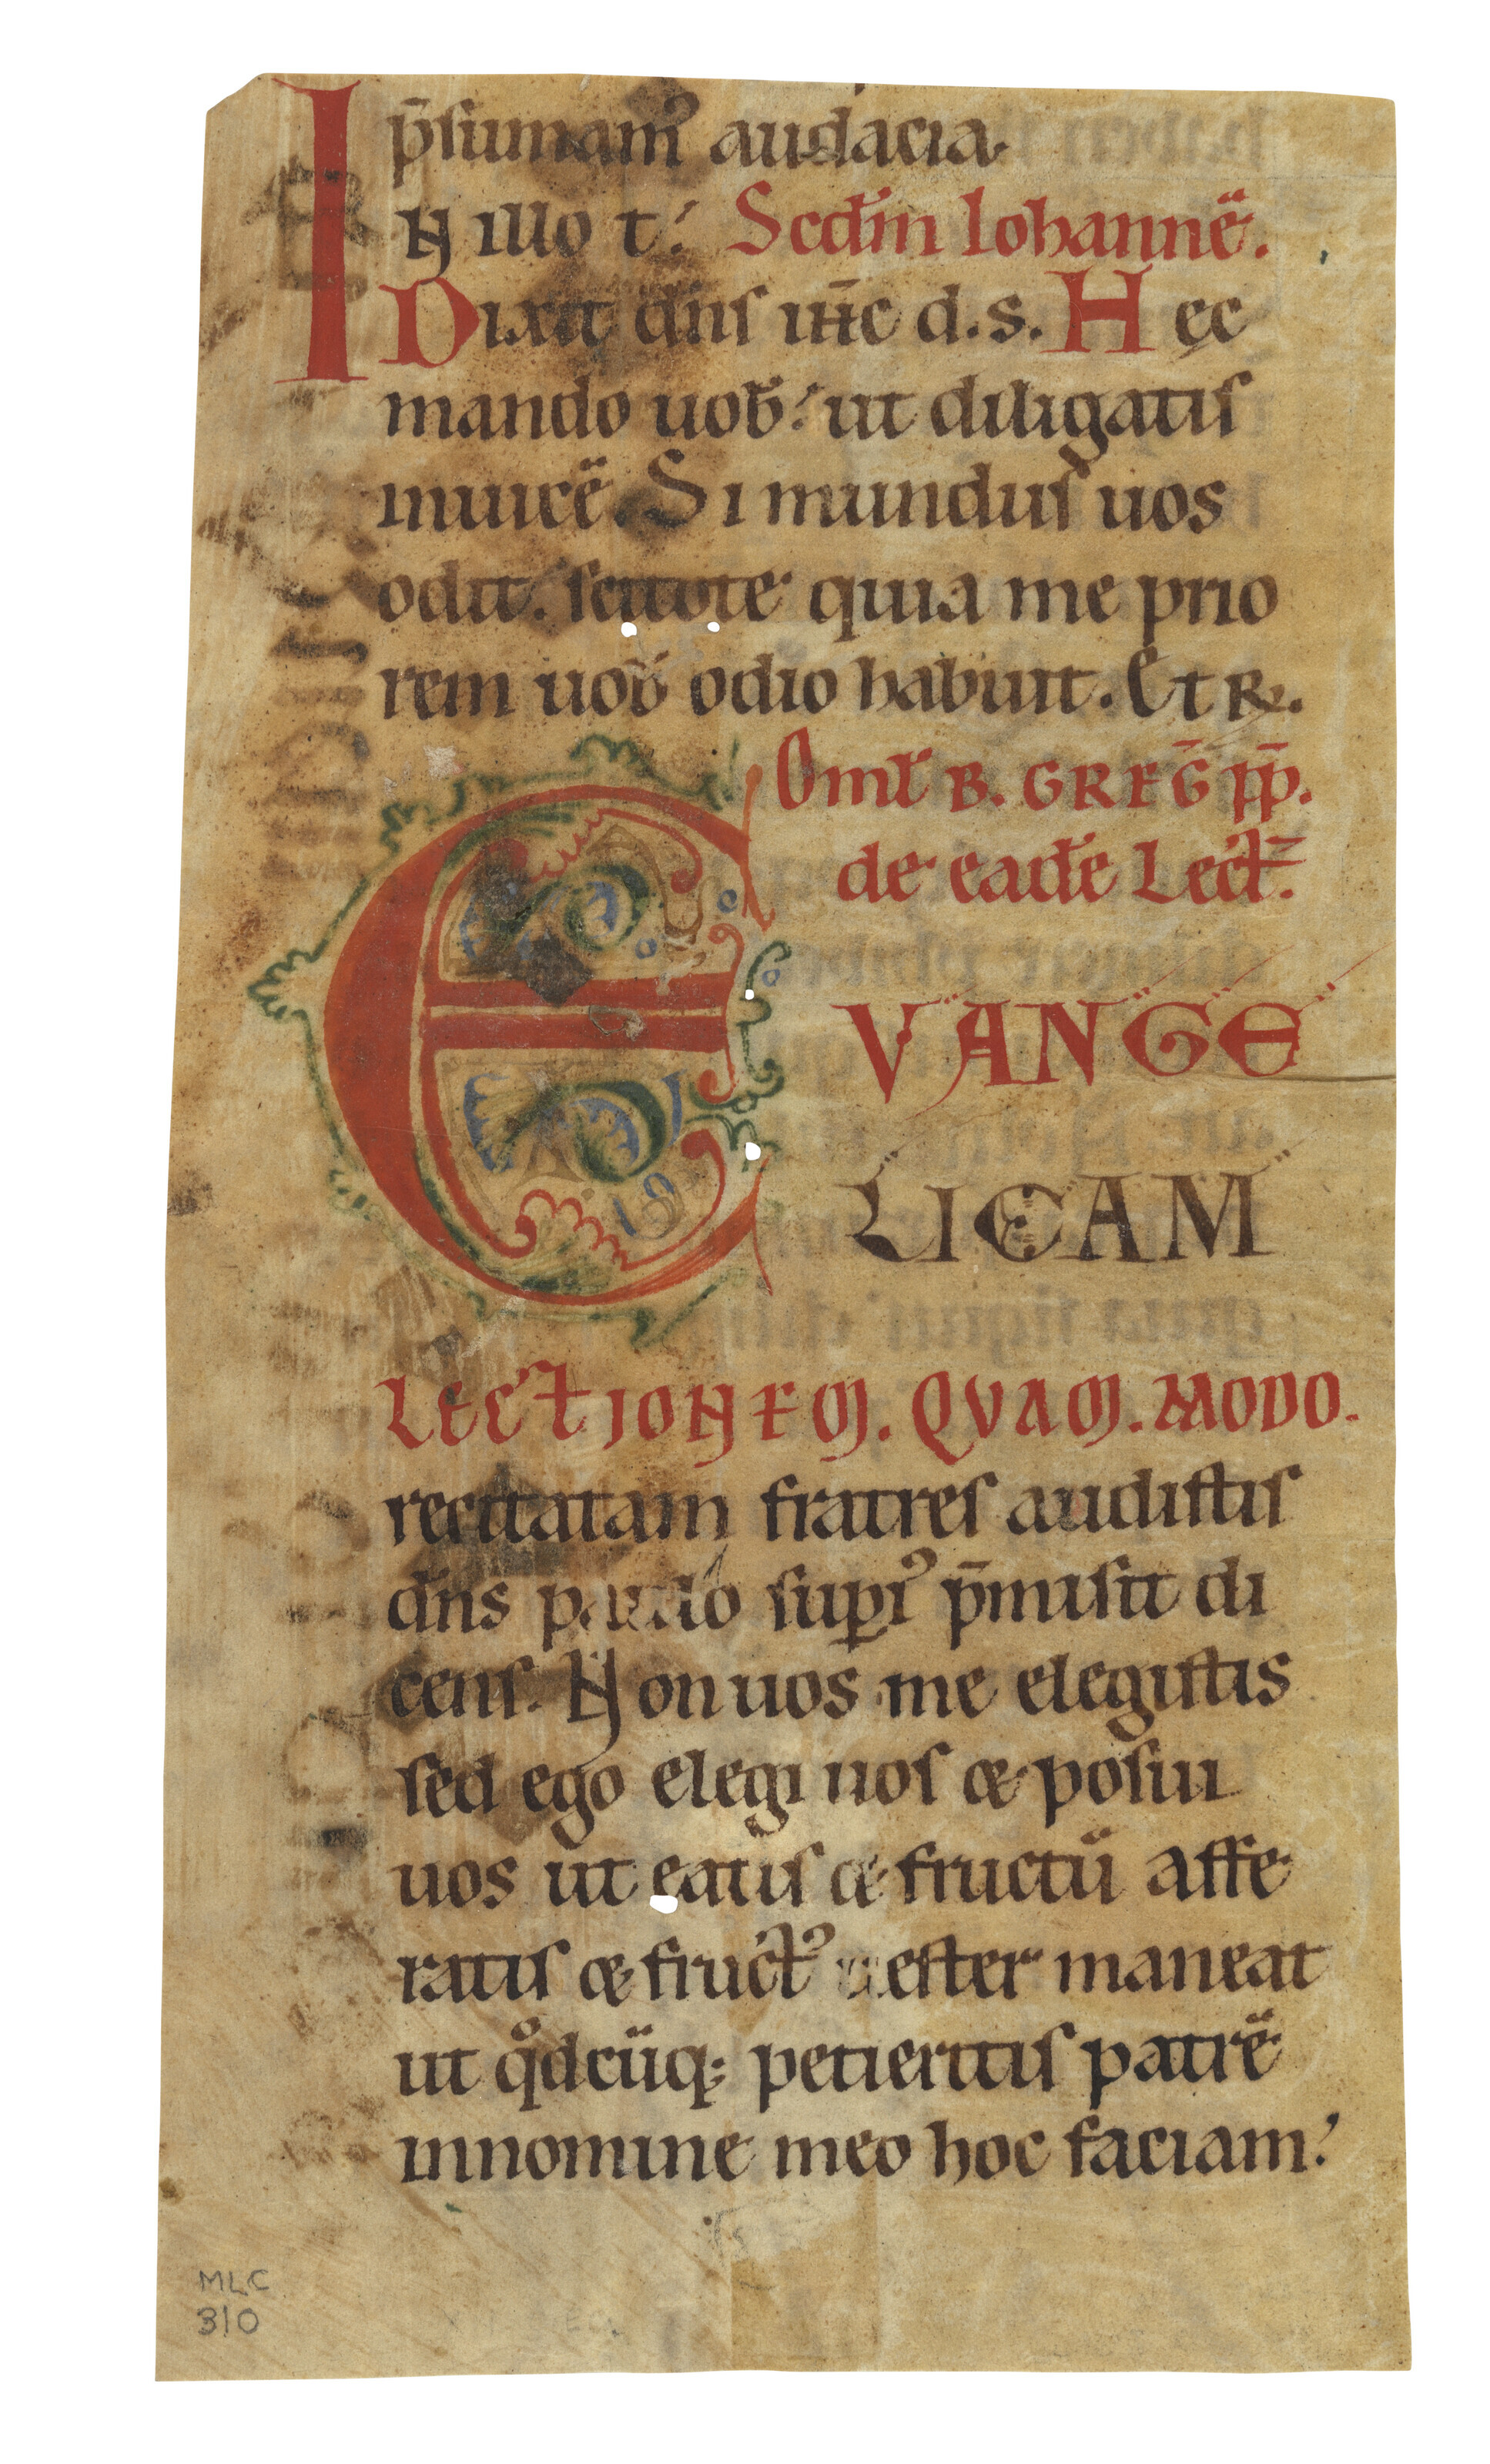 p̄sumam᷒ audacia.
IN illo t᷎. Scd̄m Iohannē.
Dixit dn̄s ih̄c d.s. Hec
mando uob̄. ut diligatis
inuicē. Si mundus uos
odit. scitote quia me prio
rem uob̄ odio habuit. Et R.
Om̄l B. GREḠ PP̄.
de eadē Lect̄.
EVANGE
LICAM
LECTIONEM. QVAM. MODO.
recitatam fratres audistis
dn̄s paulo sup̱i᷒ p̄misit di
cens. Non uos me elegistis
sed ego elegi uos æ posui
uos ut eatis æ fructū affe
ratis æ fruct᷒ uester maneat
ut qͦdcūq; petieritis patrē
in nomine meo hoc faciam.
MLC
310